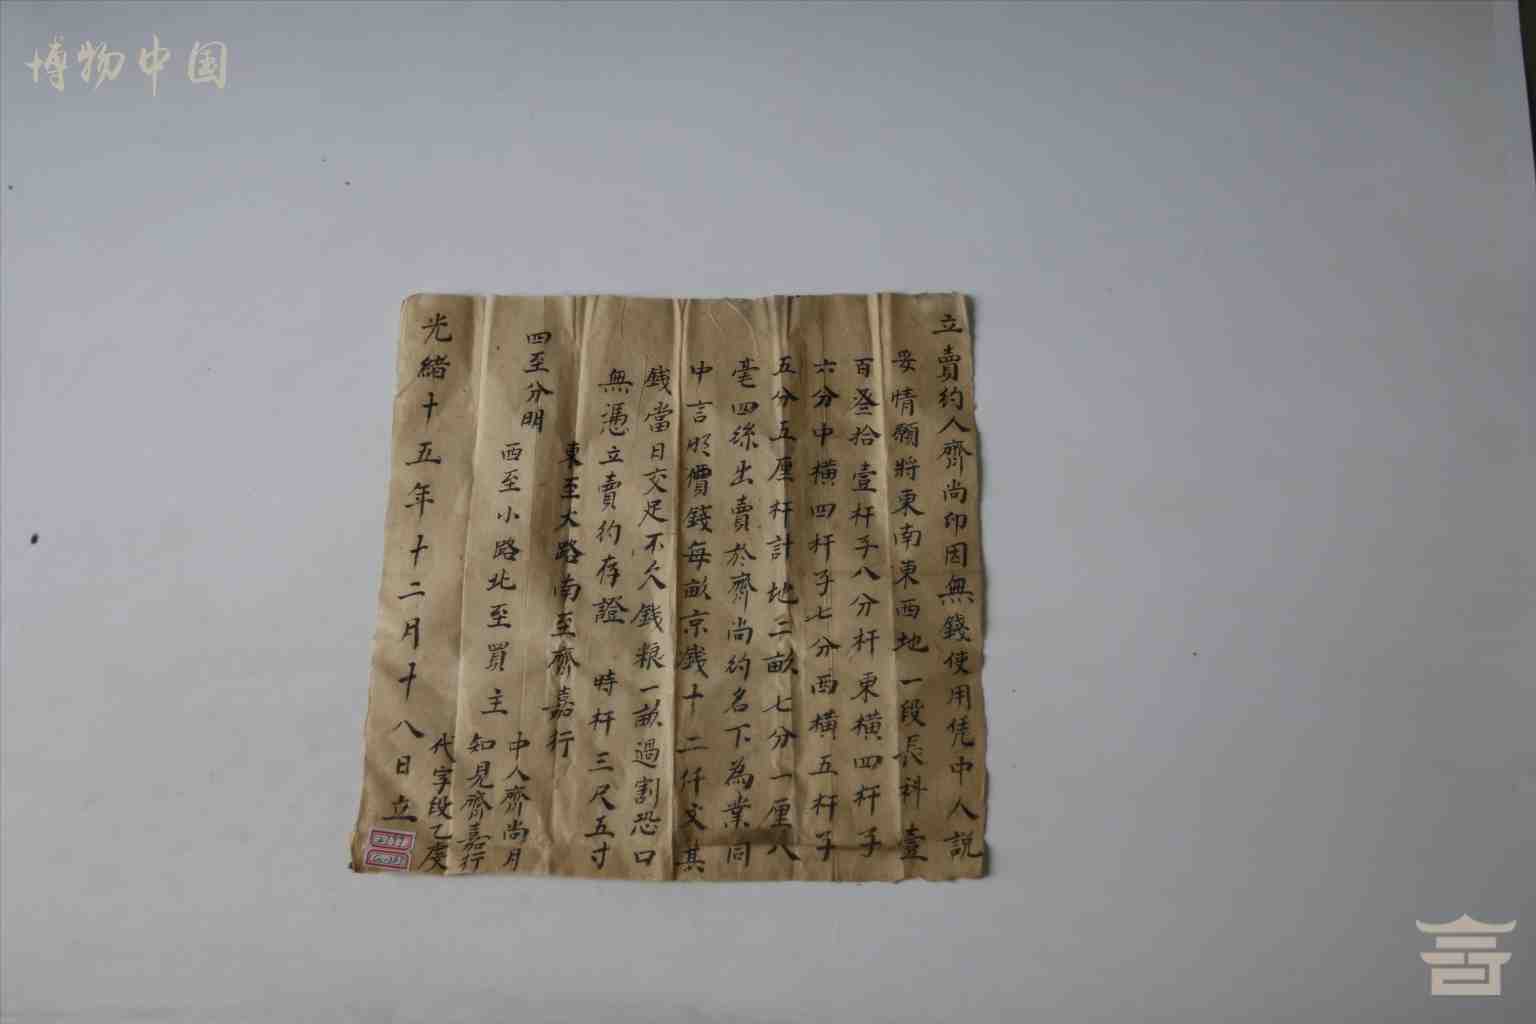 博物中国
立賣約人齊尚印因無錢使用凭中人説
妥情願將東南東西地一段長科壹
百叁拾壹杆子八分杆東橫四杆子
六分中橫四杆子七分西橫五杆子
五分五厘杆計地二畝七分一厘八
毫四絲出賣於齊尚約名下為業同
中言明價錢每畝京錢十二仟文其
錢當日交足不欠錢粮一畝過割恐口
無憑立賣約存證 時杆三尺五寸
東至大路南至齊嘉行
四至分明
西至小路北至買主
中人齊尚月
知見齊嘉行
代字段乙度
光緒十五年十二月十八日立